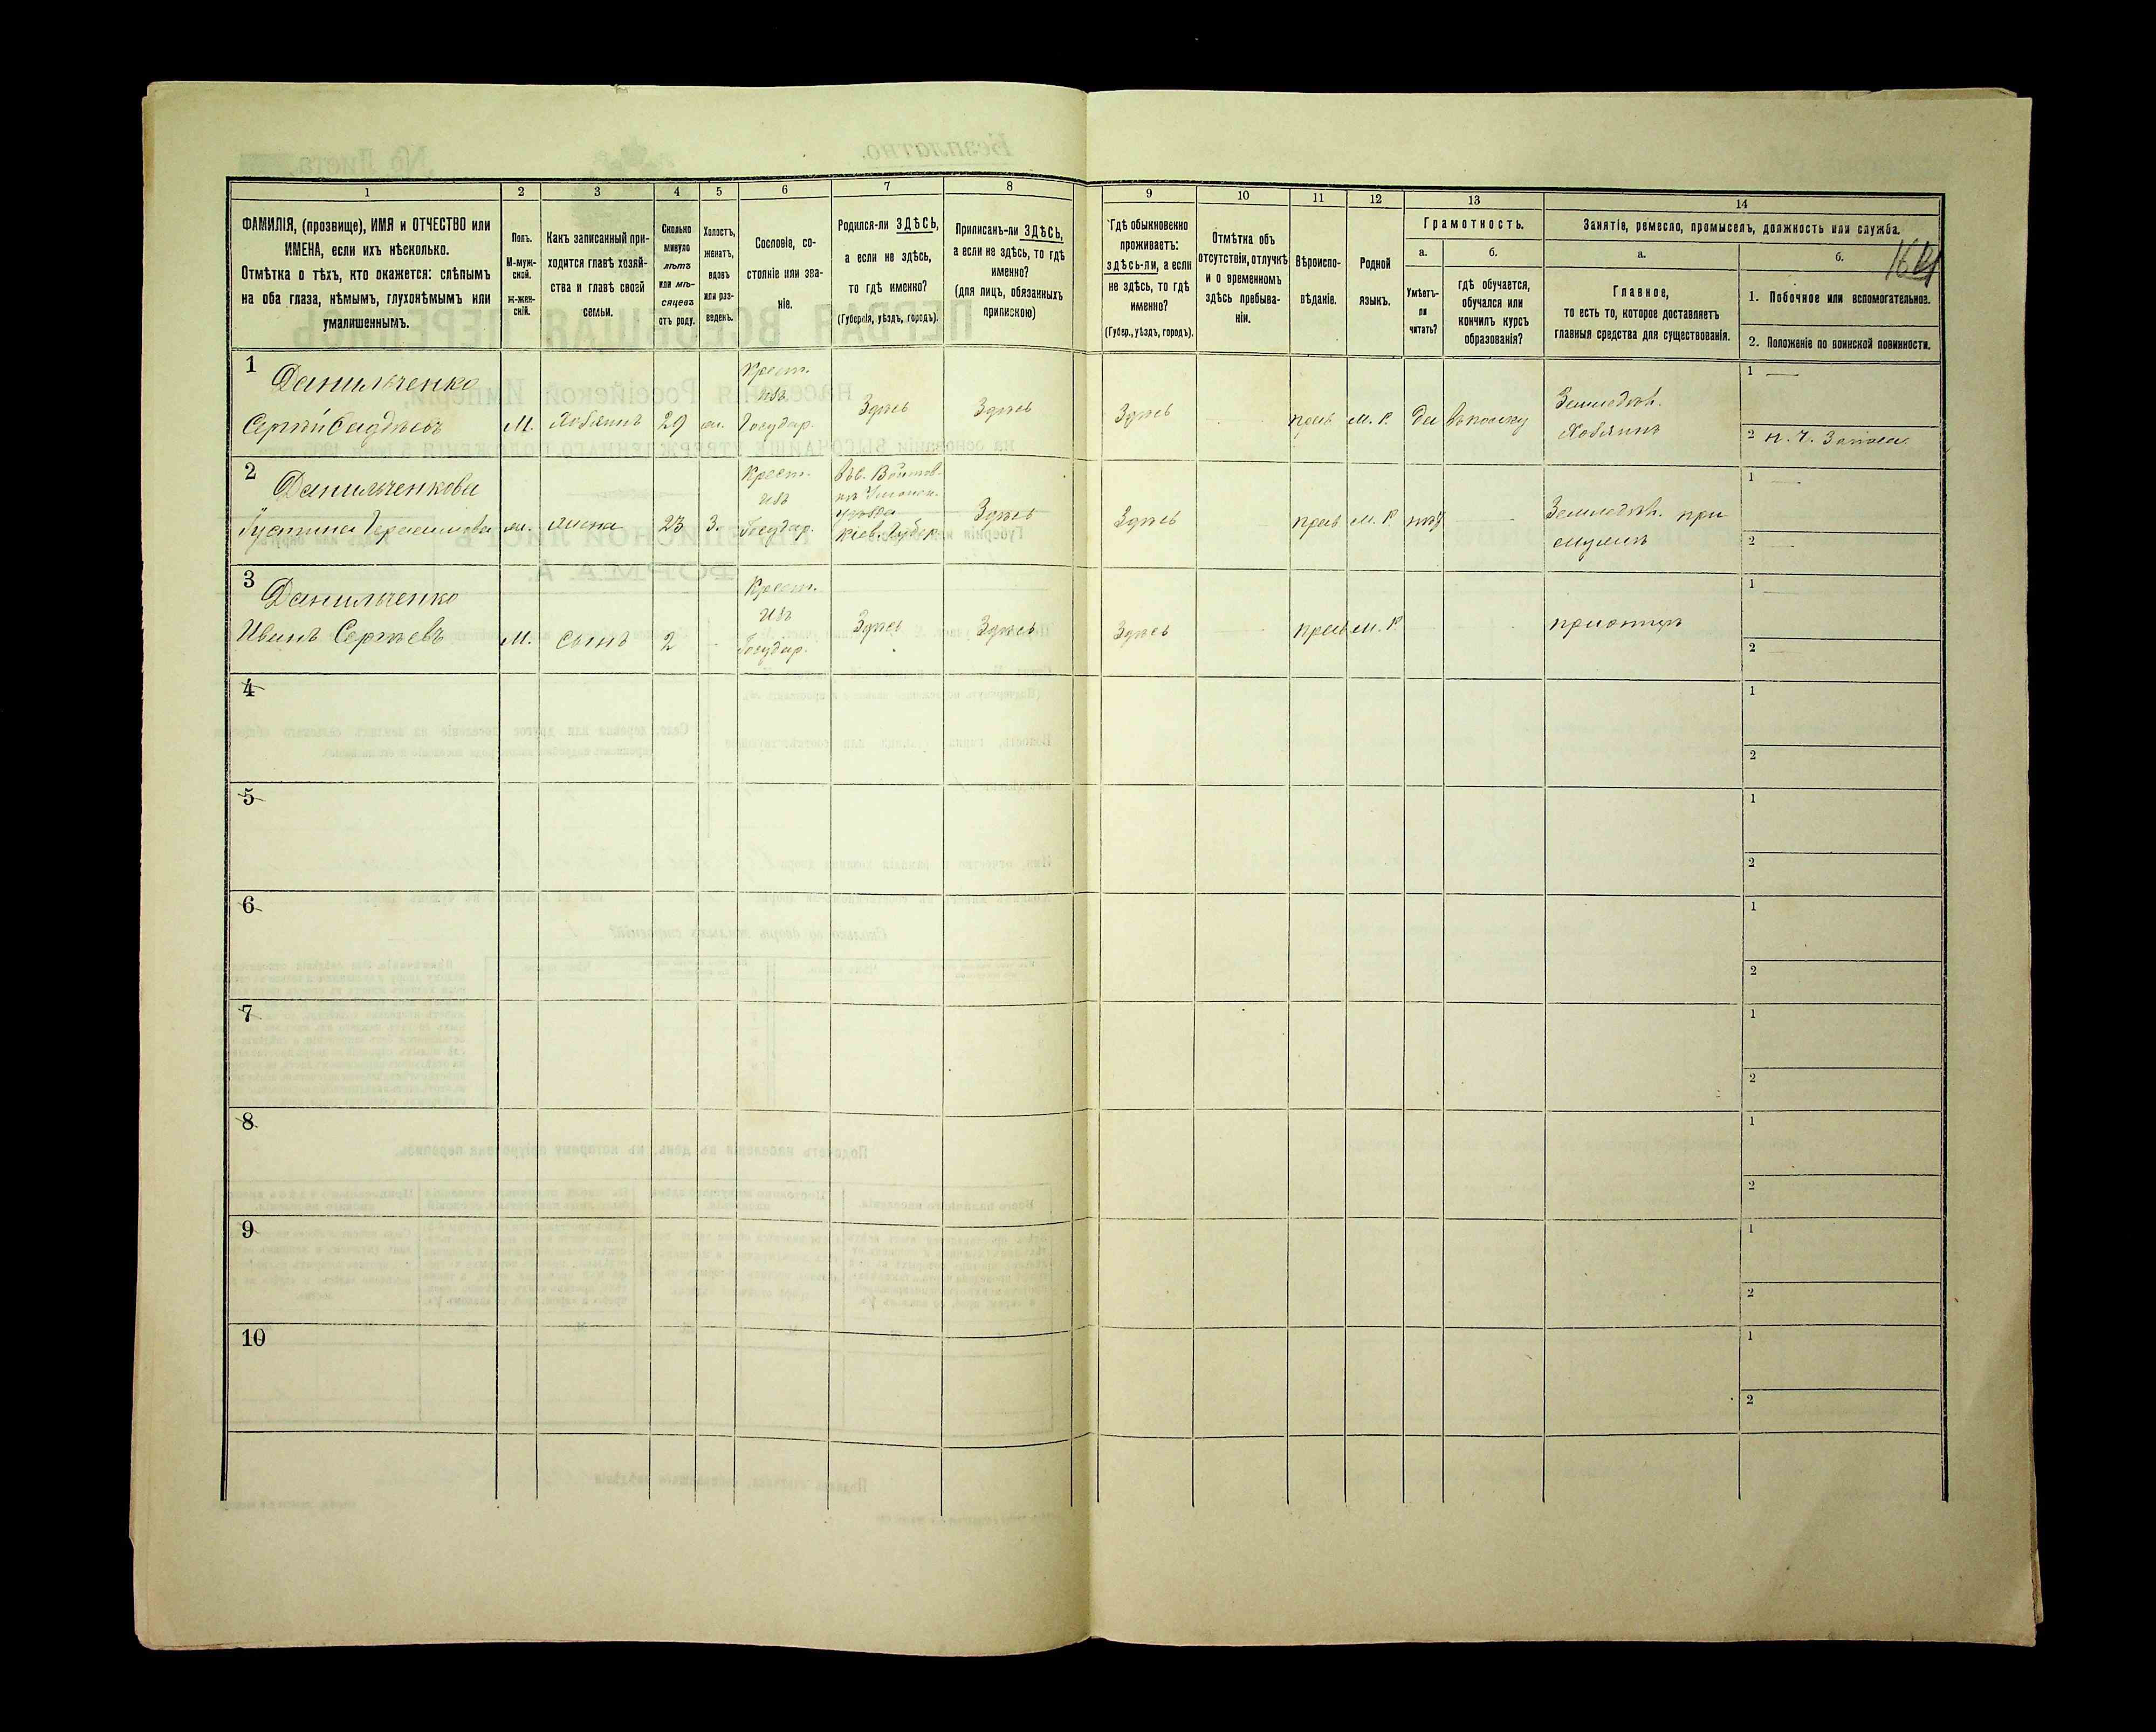 1
2
3
4
5
6
7
8
9
10
11
12
13
14
ФАМИЛІЯ, (прозвище), ИМЯ и ОТЧЕСТВО или
ИМЕНА, если ихъ нѣсколько.
Отмѣтка о тѣхъ, кто окажется: слѣпымъ
на оба глаза, нѣмымъ, глухонѣмымъ или
умалишеннымъ.
Полъ.
М-муж-
ской.
ж-жен-
скій.
Какъ записанный при-
ходится главѣ хозяй-
ства и главѣ своей
семьи.
Сколько
минуло
лѣтъ
или мѣ-
сяцевъ
отъ роду.
Холостъ,
женатъ,
вдовъ
или раз-
веденъ.
Сословіе, со-
стояніе или зва-
ніе.
Родился-ли ЗДѢСЬ,
а если не здѣсь,
то гдѣ именно?
(Губернія, уѣздъ, городъ).
Приписанъ-ли ЗДѢСЬ,
а если не здѣсь, то гдѣ
именно?
(для лицъ, обязанныхъ
припискою)
Гдѣ обыкновенно
проживаетъ:
здѣсь-ли, а если
не здѣсь, то гдѣ
именно?
(Губер., уѣздъ, городъ).
Отмѣтка объ
отсутствіи, отлучкѣ
и о временномъ
здѣсь пребыва-
ніи.
Вѣроиспо-
вѣданіе.
Родной
языкъ.
Грамотность.
а.
Умѣетъ-
ли
читать?
б.
гдѣ обучается,
обучался или
кончилъ курсъ
образованія?
Занятіе, ремесло, промыселъ, должность или служба.
а.
Главное,
то есть то, которое доставляетъ
главныя средства для существованія.
б.
1. Побочное или вспомогательное.
2. Положеніе по воинской повинности.
1
Данильченко
Сергѣй
М.
Хозяинъ
29
ж.
Крест.
изъ
Государ.
Здѣсь
Здѣсь
Здѣсь
прав
М. Р.
да
Земледѣл.
Хозяинъ
1
2
Запаса
2
Данильченкова
Герасимова
ж.
жена
23
З.
Крест.
изъ
Государ.
уѣзда
Кіев. Губер.
Здѣсь
Здѣсь
прав
М. Р.
нѣт
Земледѣл. при
мужѣ
1
2
3
Данильченко
Иванъ Сергѣевъ
М.
сынъ
2
Крест.
Изъ
Государ.
Здѣсь
Здѣсь
Здѣсь
прав
М. Р.
при отцѣ
1
2
4
1
2
5
1
2
6
1
2
7
1
2
8
1
2
9
1
2
10
1
2